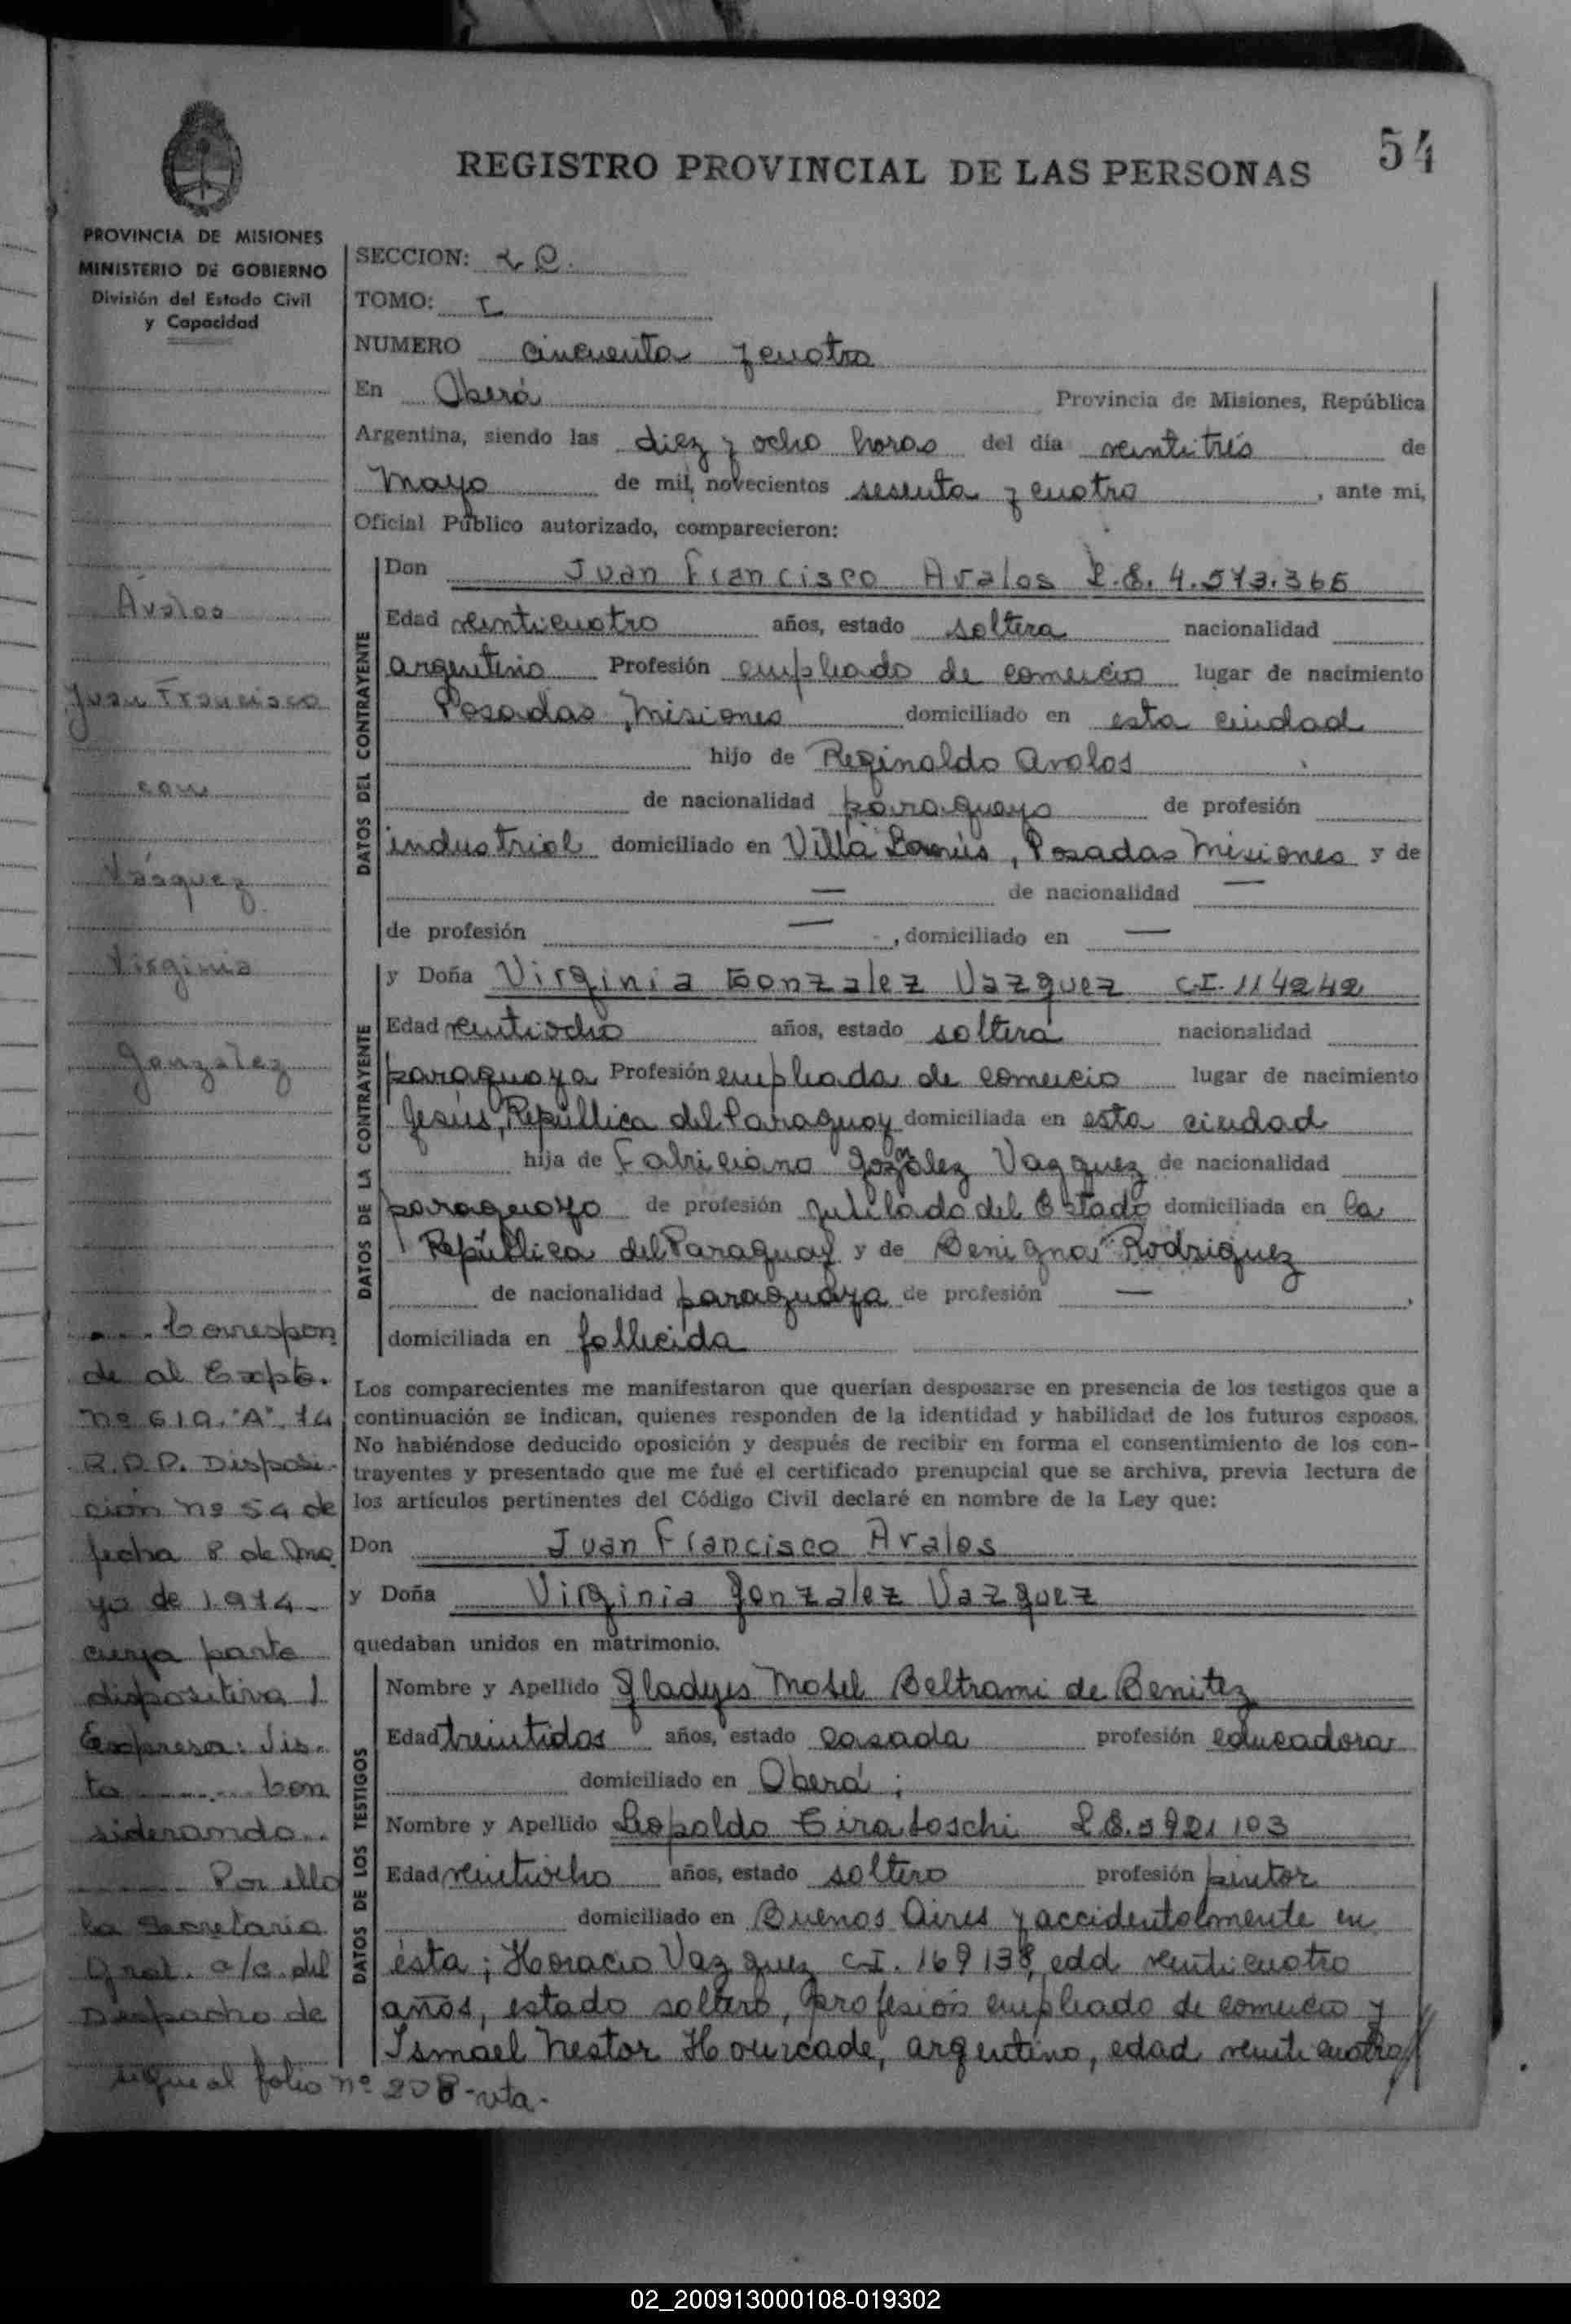 54
REGISTRO PROVINCIAL DE LAS PERSONAS
PROVINCIA DE MISIONES
MINISTERIO DE GOBIERNO
División del Estado Civil
y Capacidad
Ávalos
Juan Francisco
con
Vásquez
Virginia
Gonzalez
Correspon
de al Expte.
nº 619."A".74
R.P.P. Disposi-
ción nº 54 de
fecha 8 de Ma
yo de 1974-
cuya parte
dispositiva
Expresa: Vis-
to ........ Con
siderando..
Por ello
la Secretaria
Gral. a/c. del
Despacho de
sigue al folio nº 208-vta-
SECCION:
TOMO: I
NUMERO cincuenta y cuatro
En Oberá Provincia de Misiones, República
Argentina, siendo las diez y ocho horas del día veintitrés de
Mayo de mil novecientos sesenta y cuatro, ante mi,
Oficial Público autorizado, comparecieron:
DATOS DEL CONTRAYENTE
Don Juan Francisco Avalos L.E. 4.573.365
Edad veinticuatro años, estado soltero nacionalidad
argentino Profesión empleado de comercio lugar de nacimiento
Posadas, Misiones domiciliado en esta ciudad
hijo de Reginaldo Avalos
de nacionalidad paraguayo de profesión
industrial domiciliado en Villa Lanús, Posadas Misiones y de
— de nacionalidad —
de profesión —, domiciliado en —
DATOS DE LA CONTRAYENTE
y Doña Virginia Gonzalez Vazquez C.I. 114242
Edad veintiocho años, estado soltera nacionalidad
paraguaya Profesión empleada de comercio lugar de nacimiento
Jesús, República del Paraguay domiciliada en esta ciudad
hija de Fabriciano González Vazquez de nacionalidad
paraguayo de profesión jubilado del Estado domiciliada en la
República del Paraguay y de Benigna Rodriguez
de nacionalidad paraguaya de profesión —,
domiciliada en fallecida
Los comparecientes me manifestaron que querían desposarse en presencia de los testigos que a
continuación se indican, quienes responden de la identidad y habilidad de los futuros esposos.
No habiéndose deducido oposición y después de recibir en forma el consentimiento de los con-
trayentes y presentado que me fué el certificado prenupcial que se archiva, previa lectura de
los artículos pertinentes del Código Civil declaré en nombre de la Ley que:
Don Juan Francisco Avalos
y Doña Virginia Gonzalez Vazquez
quedaban unidos en matrimonio.
DATOS DE LOS TESTIGOS
Nombre y Apellido Gladys Mabel Beltrami de Benitez
Edad treintidos años, estado casada profesión educadora
domiciliado en Oberá;
Nombre y Apellido Leopoldo
Edad veintiocho años, estado soltero profesión pintor
domiciliado en Buenos Aires y accidentalmente en
ésta; Horacio Vazquez C.I. 169138, edd veinticuatro
años, estado soltero, profesión empleado de comercio y
Ismael Nestor Hourcade, argentino, edad veinticuatro//
02_200913000108-019302